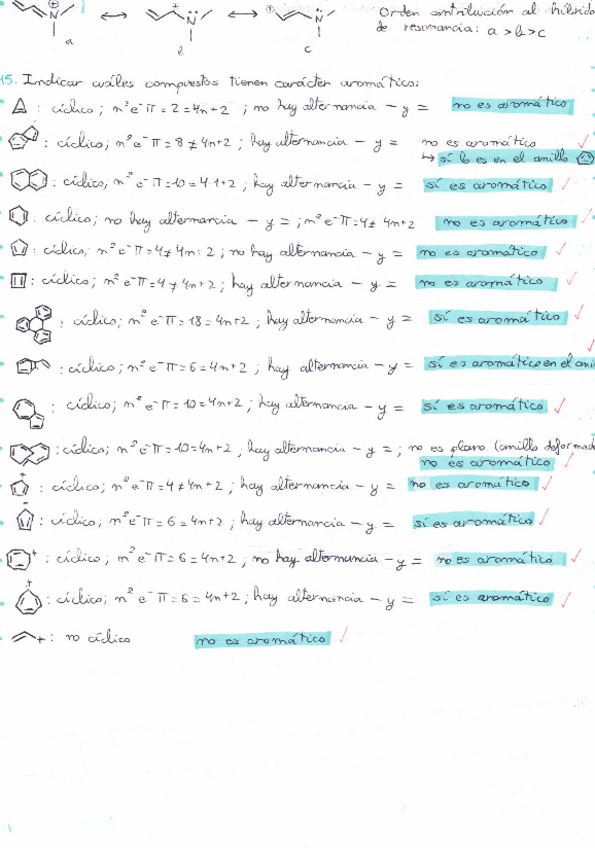 Orden contribución al híbrido
de resonancia: a > b > c
a
b
c
15. Indicar cuáles compuestos tienen carácter aromático:
: cíclico; nº e⁻ π = 2 = 4n+2 ; no hay alternancia – y = no es aromático
: cíclico; nº e⁻ π = 8 ≠ 4n+2 ; hay alternancia – y = no es aromático
↳ sí lo es en el anillo
: cíclico; nº e⁻ π = 10 = 4·1+2 ; hay alternancia – y = sí es aromático
: cíclico; no hay alternancia – y = ; nº e⁻ π = 4 ≠ 4n+2 no es aromático
: cíclico; nº e⁻ π = 4 ≠ 4n+2 ; no hay alternancia – y = no es aromático
: cíclico; nº e⁻ π = 4 ≠ 4n+2 ; hay alternancia – y = no es aromático
: cíclico; nº e⁻ π = 18 = 4n+2 ; hay alternancia – y = sí es aromático
: cíclico; nº e⁻ π = 6 = 4n+2 ; hay alternancia – y = sí es aromático en el
: cíclico; nº e⁻ π = 10 = 4n+2 ; hay alternancia – y = sí es aromático
: cíclico; nº e⁻ π = 10 = 4n+2 ; hay alternancia – y = ; no es plano (anillo
no es aromático
: cíclico; nº e⁻ π = 4 ≠ 4n+2 ; hay alternancia – y = no es aromático
: cíclico; nº e⁻ π = 6 = 4n+2 ; hay alternancia – y = sí es aromático
: cíclico; nº e⁻ π = 6 = 4n+2 ; no hay alternancia – y = no es aromático
: cíclico; nº e⁻ π = 6 = 4n+2 ; hay alternancia – y = sí es aromático
: no cíclico no es aromático